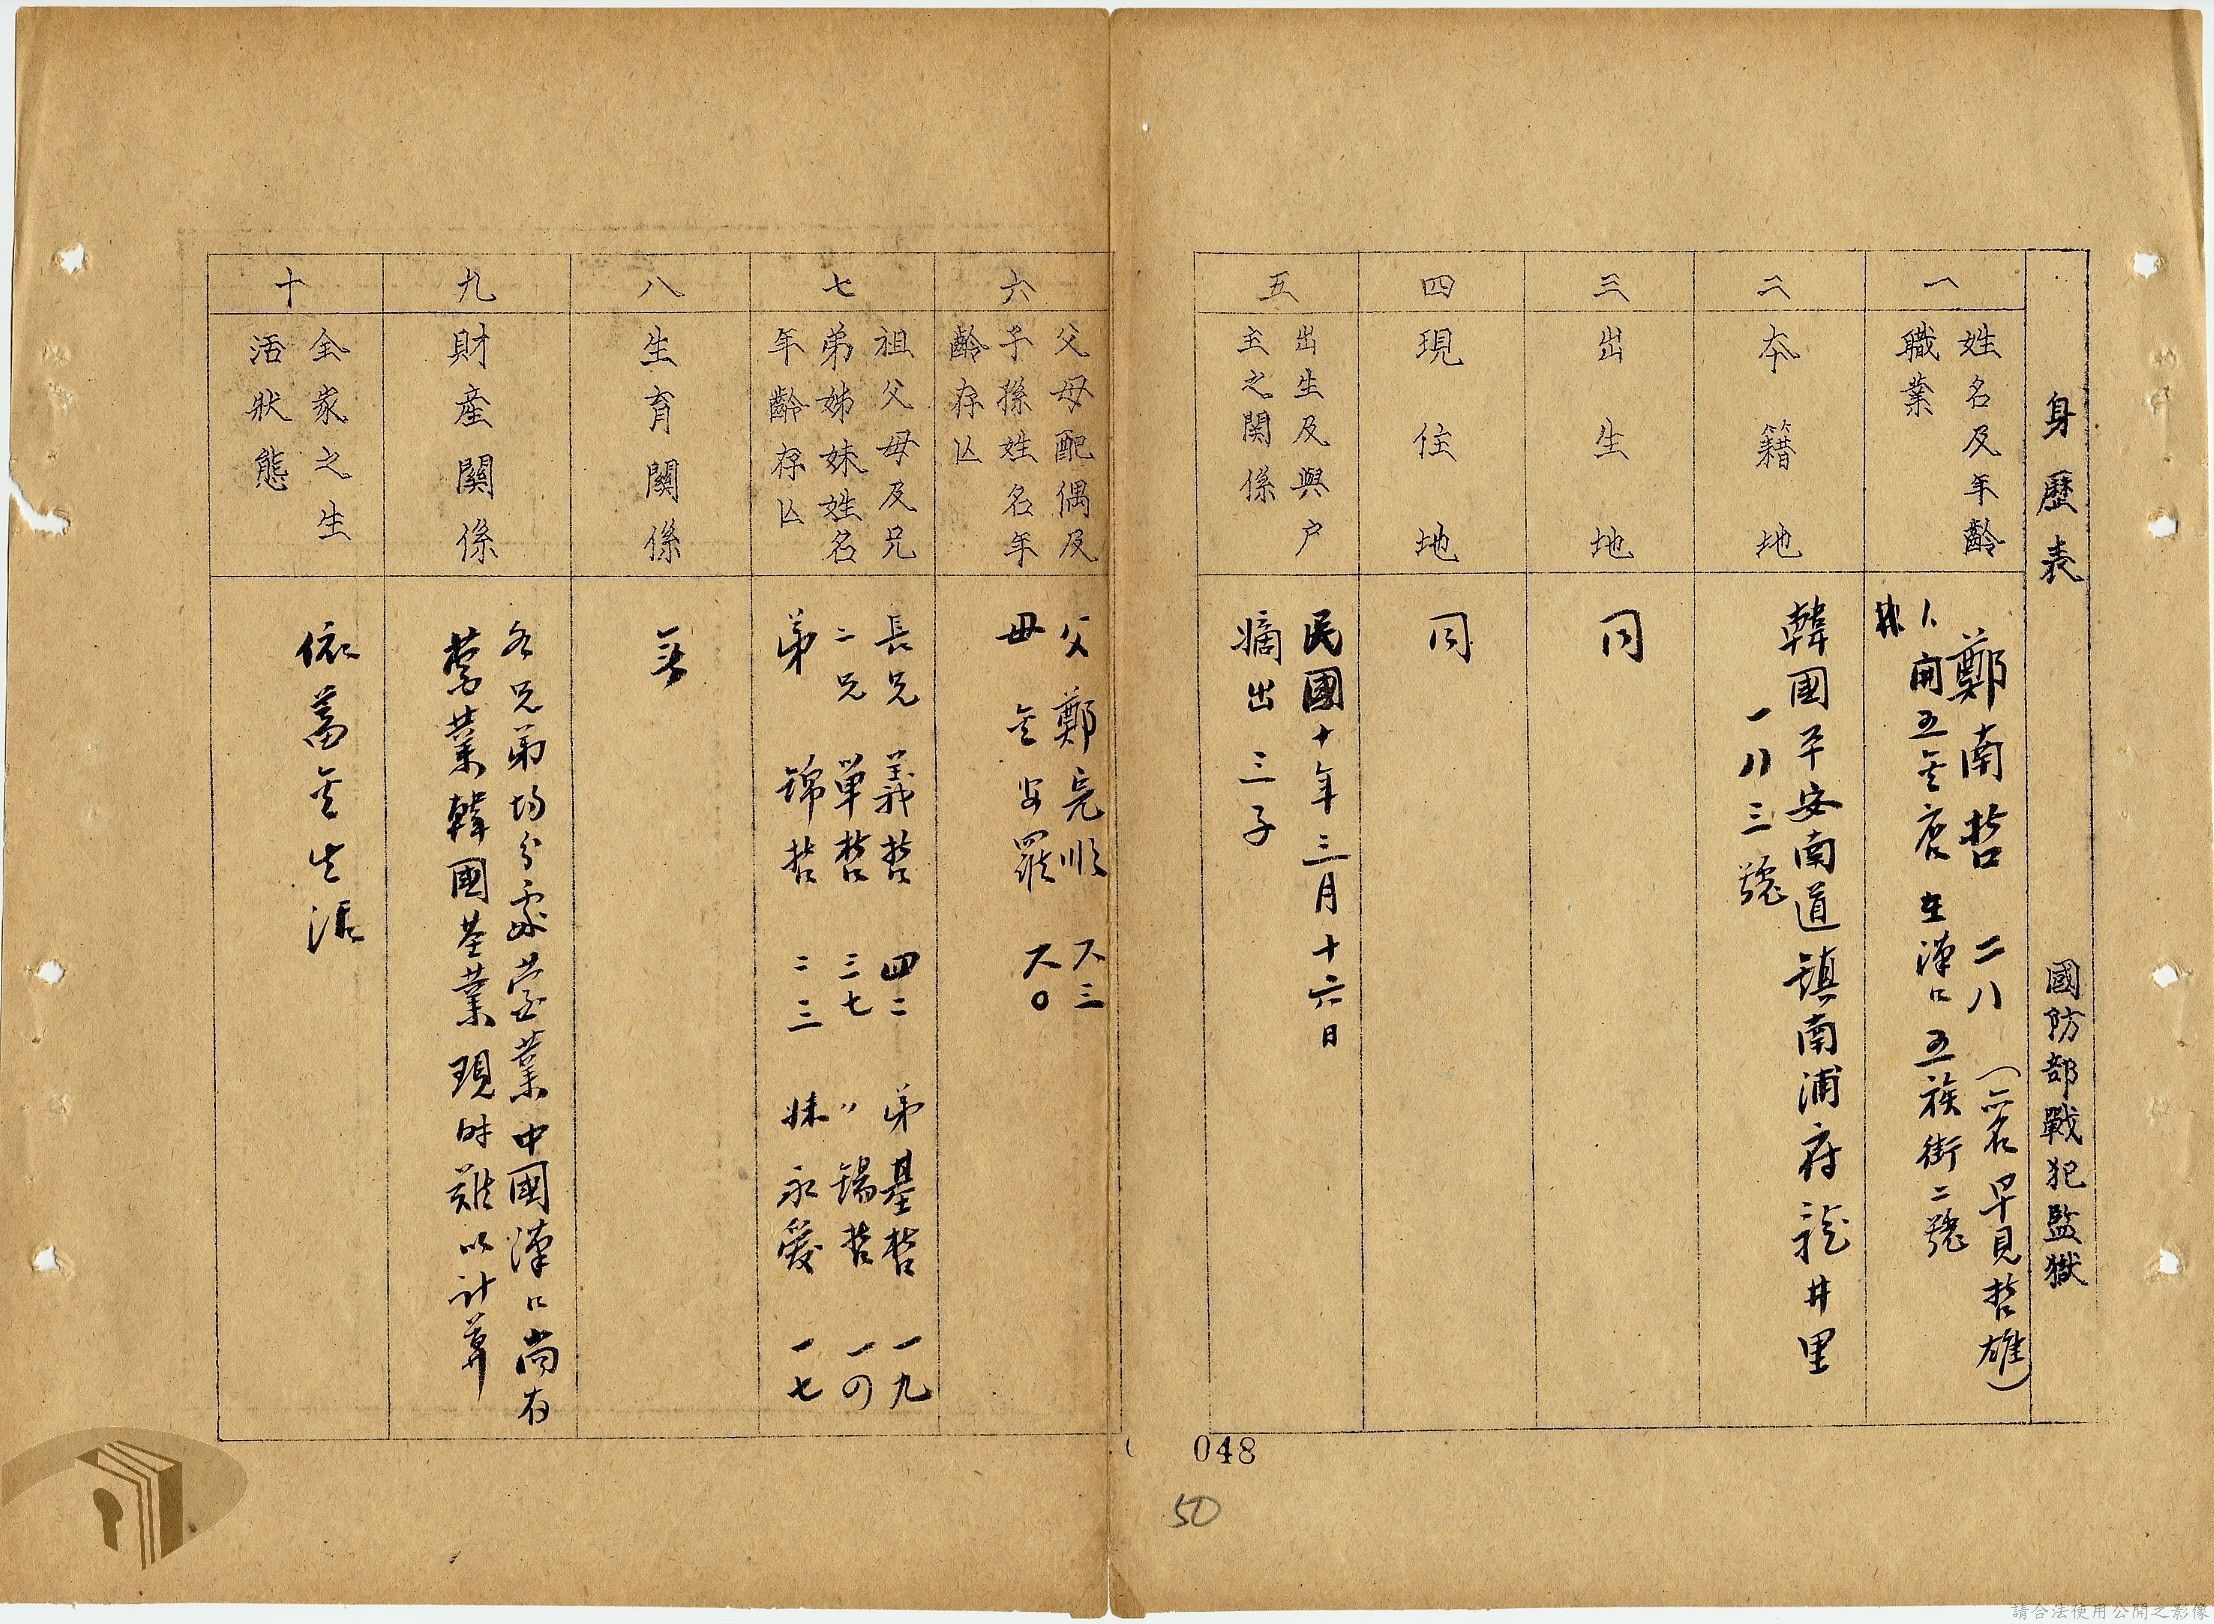 身歷表
國防部戰犯監獄
一
姓名及年齡
職業
鄭南哲 二八 (一名早見哲雄)
開五金店 在漢口五族街二號
二
本籍地
韓國平安南道鎮南浦府龍井里
一八三號
三
出生地
同
四
現住地
同
五
出生及與戶
主之關係
民國十年三月十六日
嫡出三子
六
父母配偶及
子孫姓名年
齡存亾
父 鄭亮順 六三
母 金安羅 六〇
七
祖父母及兄
弟姊妹姓名
年齡存亾
長兄 義哲 四二 弟 基哲 一九
二兄 單哲 三七 〃 錫哲 一四
弟 錦哲 二三 妹 永愛 一七
八
生育關係
無
九
財產關係
各兄弟均分處營業中國漢口尚有
營業韓國基業現时難以計算
十
全家之生
活狀態
依蓄金生活
048
50
請合法使用公開之影像